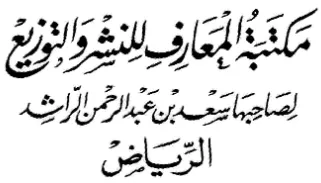 مَكتَبة المَعارف للنشر والتوزيع
لِصَاحِبهَا سَعد بن عَبد الرحمن الراشد
الريَاض